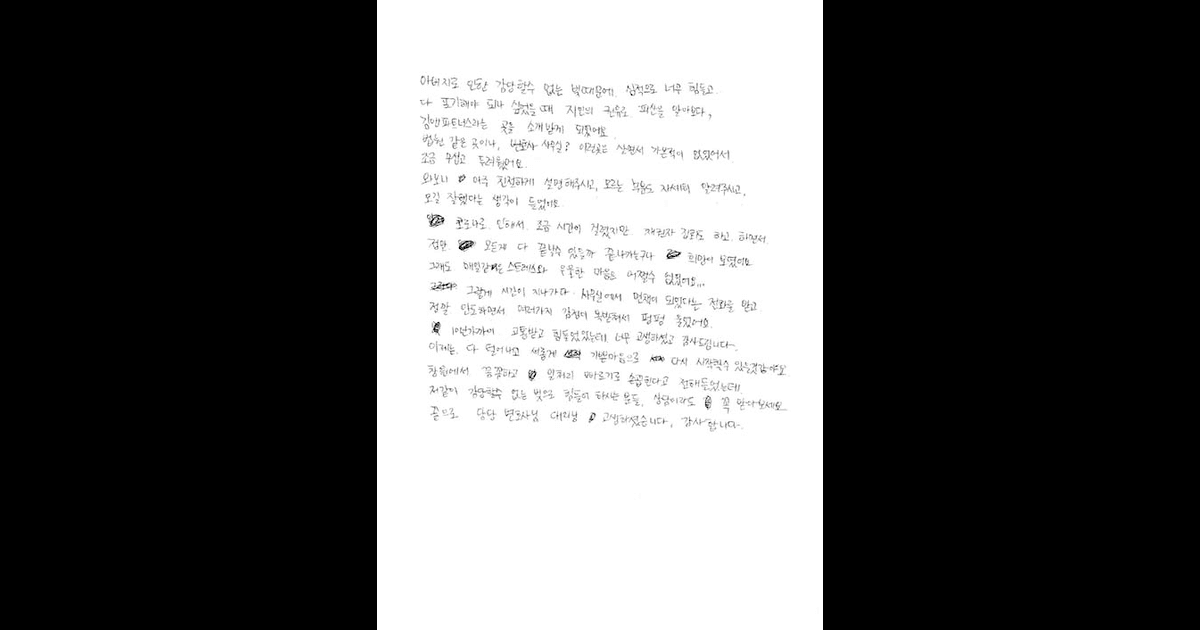 아버지로 인한 감당할수 없는 빚때문에. 심적으로 너무 힘들고.
다 포기해야 되나 싶었을때 지인의 권유로 파산을 알아보다,
김앤파트너스라는 곳을 소개받게 되었어요.
법원 같은 곳이나, 변호사 사무실? 이런곳은 살면서 가본적이 없었어서
조금 무섭고 두려웠어요.
와보니 아주 친절하게 설명해주시고, 모르는 부분도 자세히 알려주시고,
오길 잘했다는 생각이 들었어요.
코로나로 인해서. 조금 시간이 걸렸지만. 채권자 집회도 하고. 하면서.
정말 모든게 다 끝낼수 있을까 끝나가는구나 희망이 보였어요
그래도 매일같은 스트레스와 우울한 마음은 어쩔수 없었어요...
그렇게 시간이 지나가다. 사무실에서 면책이 되었다는 전화를 받고
정말 안도하면서 여러가지 감정이 북받쳐서 펑펑 울었어요.
10년가까이 고통받고 힘들었었는데 너무 고생하셨고 감사드립니다.
이제는. 다 털어내고 새롭게 기쁜마음으로 다시 시작할수 있을것같아요.
창원에서 꼼꼼하고 일처리 빠르기로 손꼽힌다고 전해들었는데
저같이 감당할수 없는 빚으로 힘들어 하시는 분들. 상담이라도 꼭 받아보세요
끝으로 담당 변호사님 대리님 고생하셨습니다, 감사합니다.